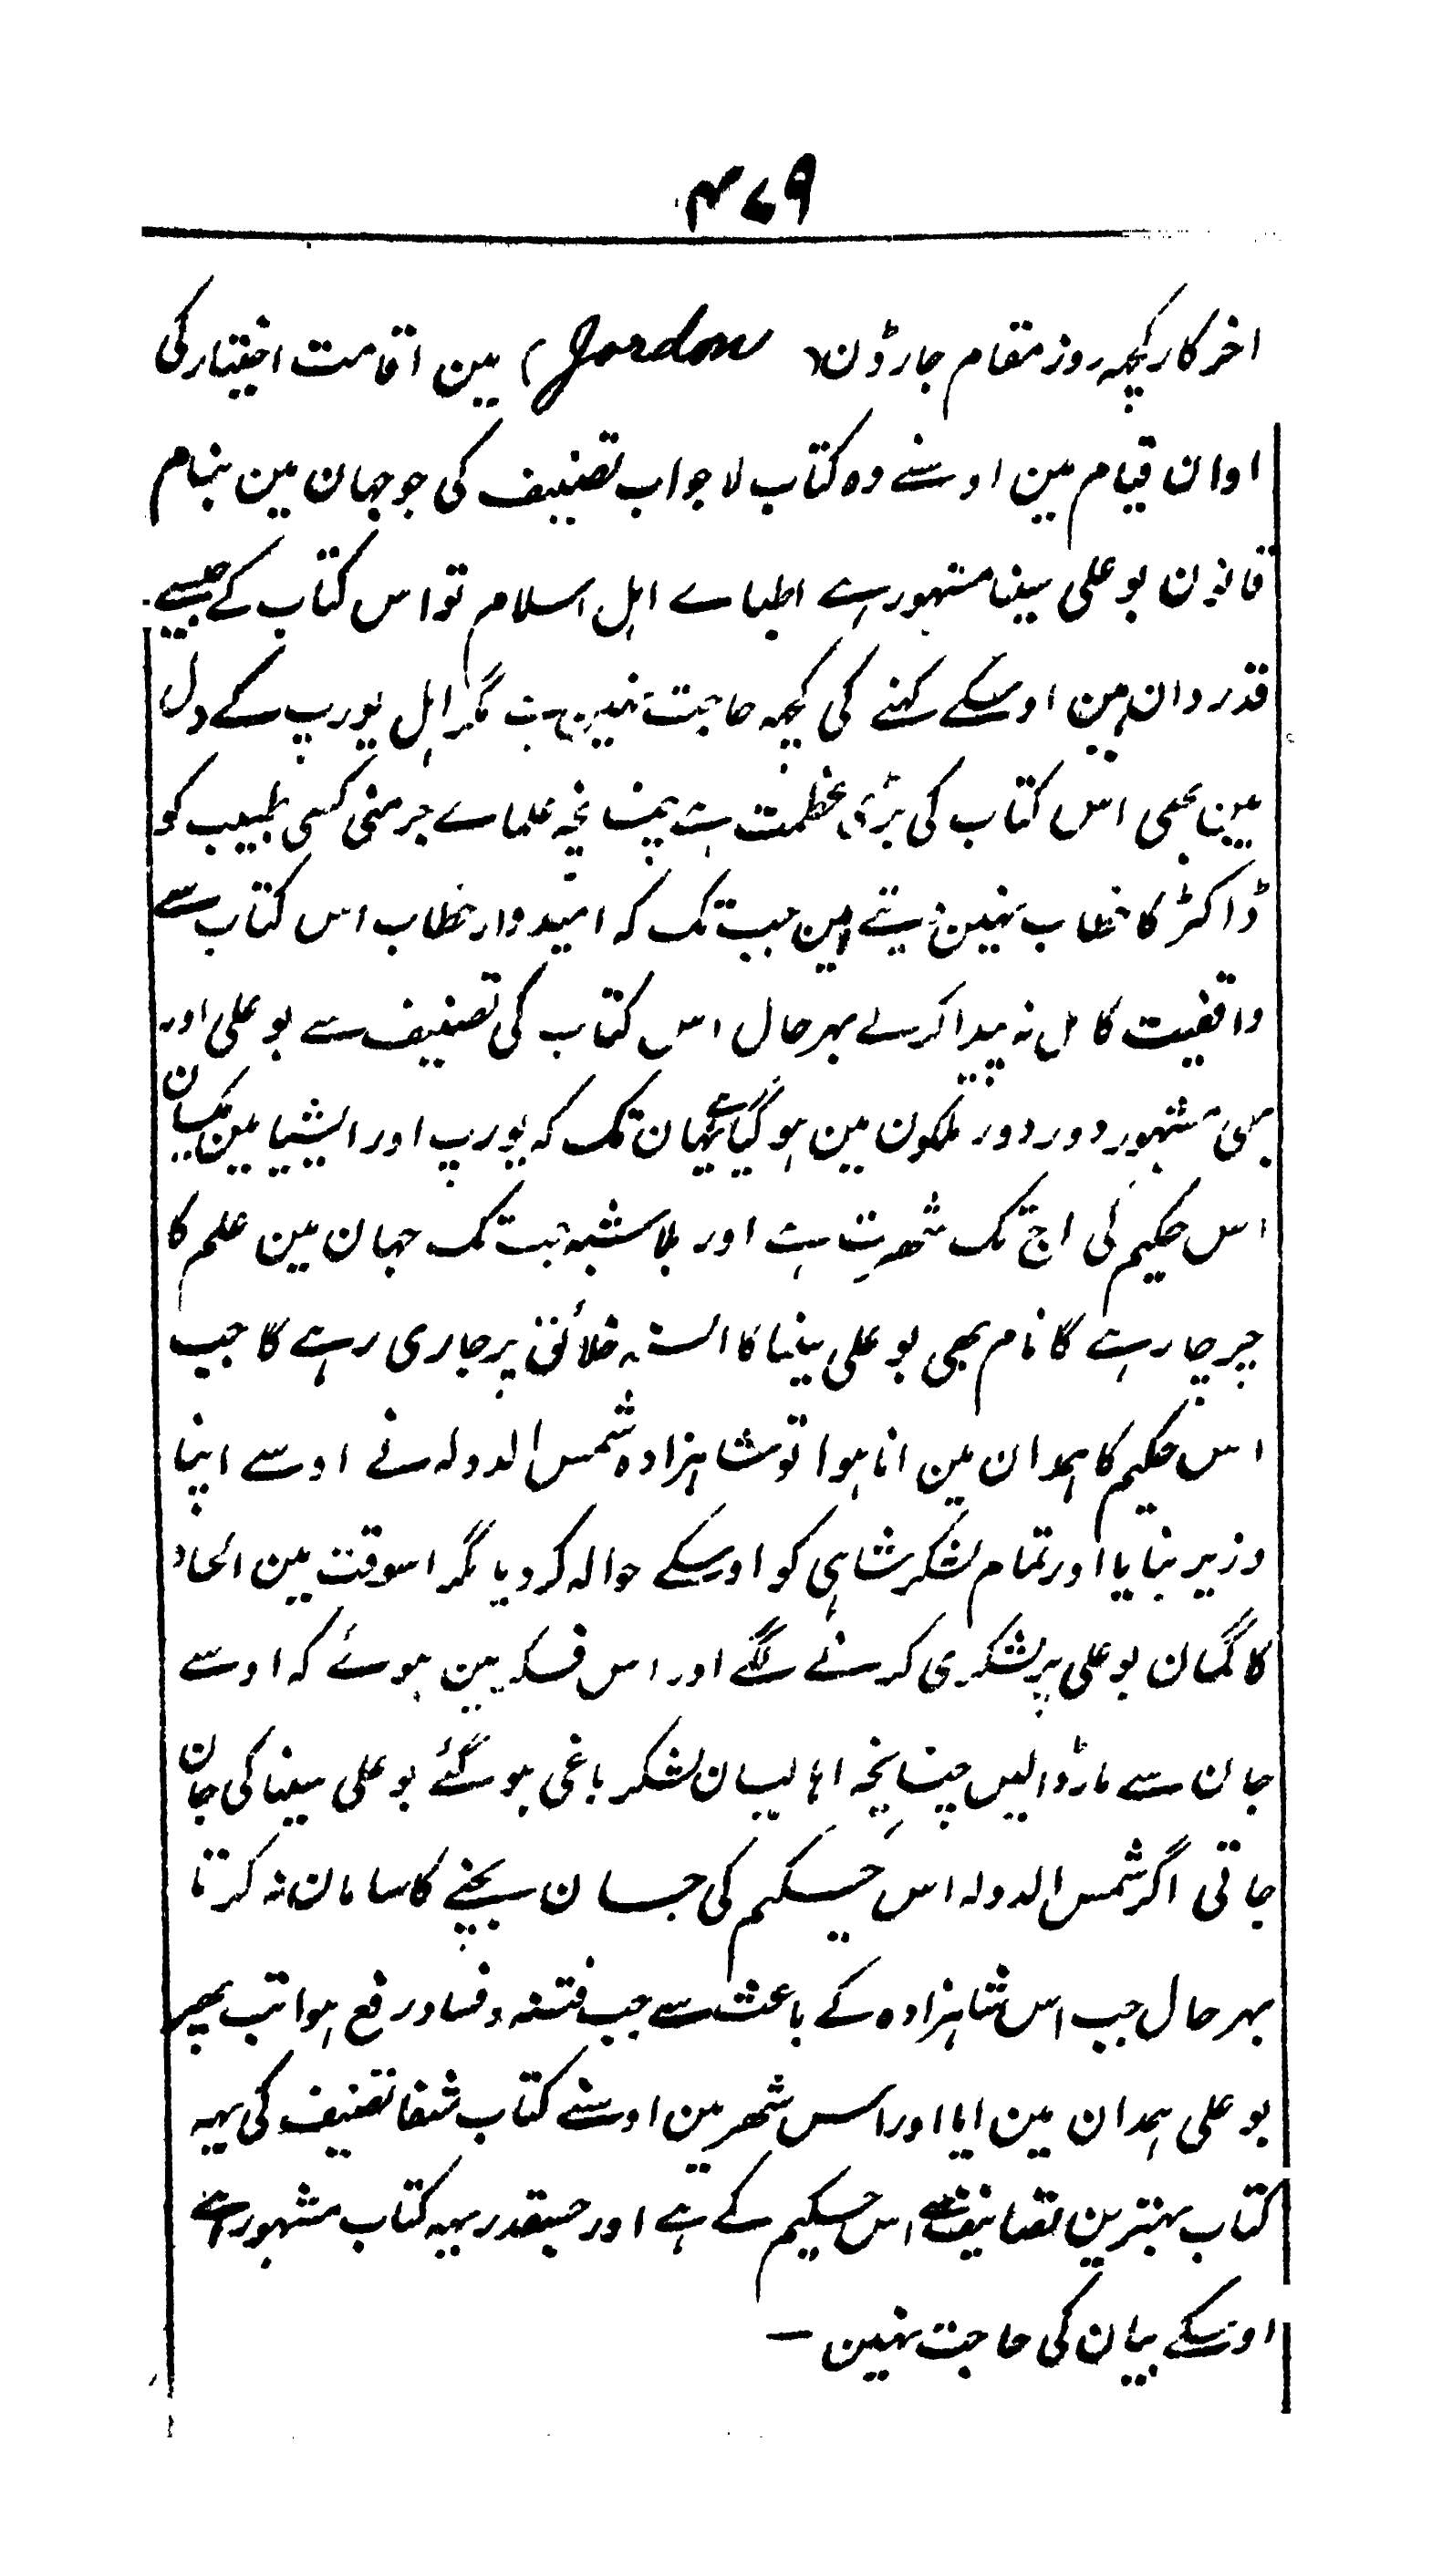 ۴۷۹
اخر کار کچہہ روز مقام جارڈن (Jordon) مین اقامت اختیار کی
اوان قیام مین اوسنے وہ کتاب لاجواب تصنیف کی جو جہان مین بنام
قانون بو علی سینا مشہور ہے اطباے اہل اسلام تو اس کتاب کے جیسے
قدردان ہین اوسکے کہنے کی کچہہ حاجت نہین ہے مگر اہل یورپ کے دل
مین بھی اس کتاب کی بڑی عظمت ہے چنانچہ علماے جرمنی کسی طبیب کو
ڈاکٹر کا خطاب نہین دیتے ہین جبتک کہ امیدوار خطاب اس کتاب سے
واقفیت کامل نہ پیدا کرلے بہر حال اس کتاب کی تصنیف سے بو علی اور
بھی مشہور دور دور ملکون مین ہو گیا ہے یہان تک کہ یورپ اور ایشیا مین یکسان
اس حکیم کی اجتک شہرت ہے اور بلاشبہ جبتک جہان مین علم کا
چرچا رہے گا نام بھی بو علی سینا کا السنہ خلائق پر جاری رہے گا جب
اس حکیم کا ہمدان مین انا ہوا تو شاہزادہ شمس الدولہ نے اوسے اپنا
وزیر بنایا اور تمام لشکر شاہی کو اوسکے حوالہ کر دیا مگر اسوقت مین الحاد
کا گمان بو علی پر لشکری کرنے لگے اور اس فکر مین ہوئے کہ اوسے
جان سے مار ڈالیں چنانچہ اہالیان لشکر باغی ہو گئے بو علی سینا کی جان
جاتی اگر شمس الدولہ اس حکیم کی جان بچنے کا سامان نہ کرتا
بہر حال جب اس شاہزادہ کے باعث سے جب فتنہ و فساد رفع ہوا تب پھر
بو علی ہمدان مین ایا اور اس شہر مین اوسنے کتاب شفا تصنیف کی یہہ
کتاب بہترین تصانیف سے اس حکیم کے ہے اور جسقدر یہہ کتاب مشہور ہے
اوسکے بیان کی حاجت نہین —